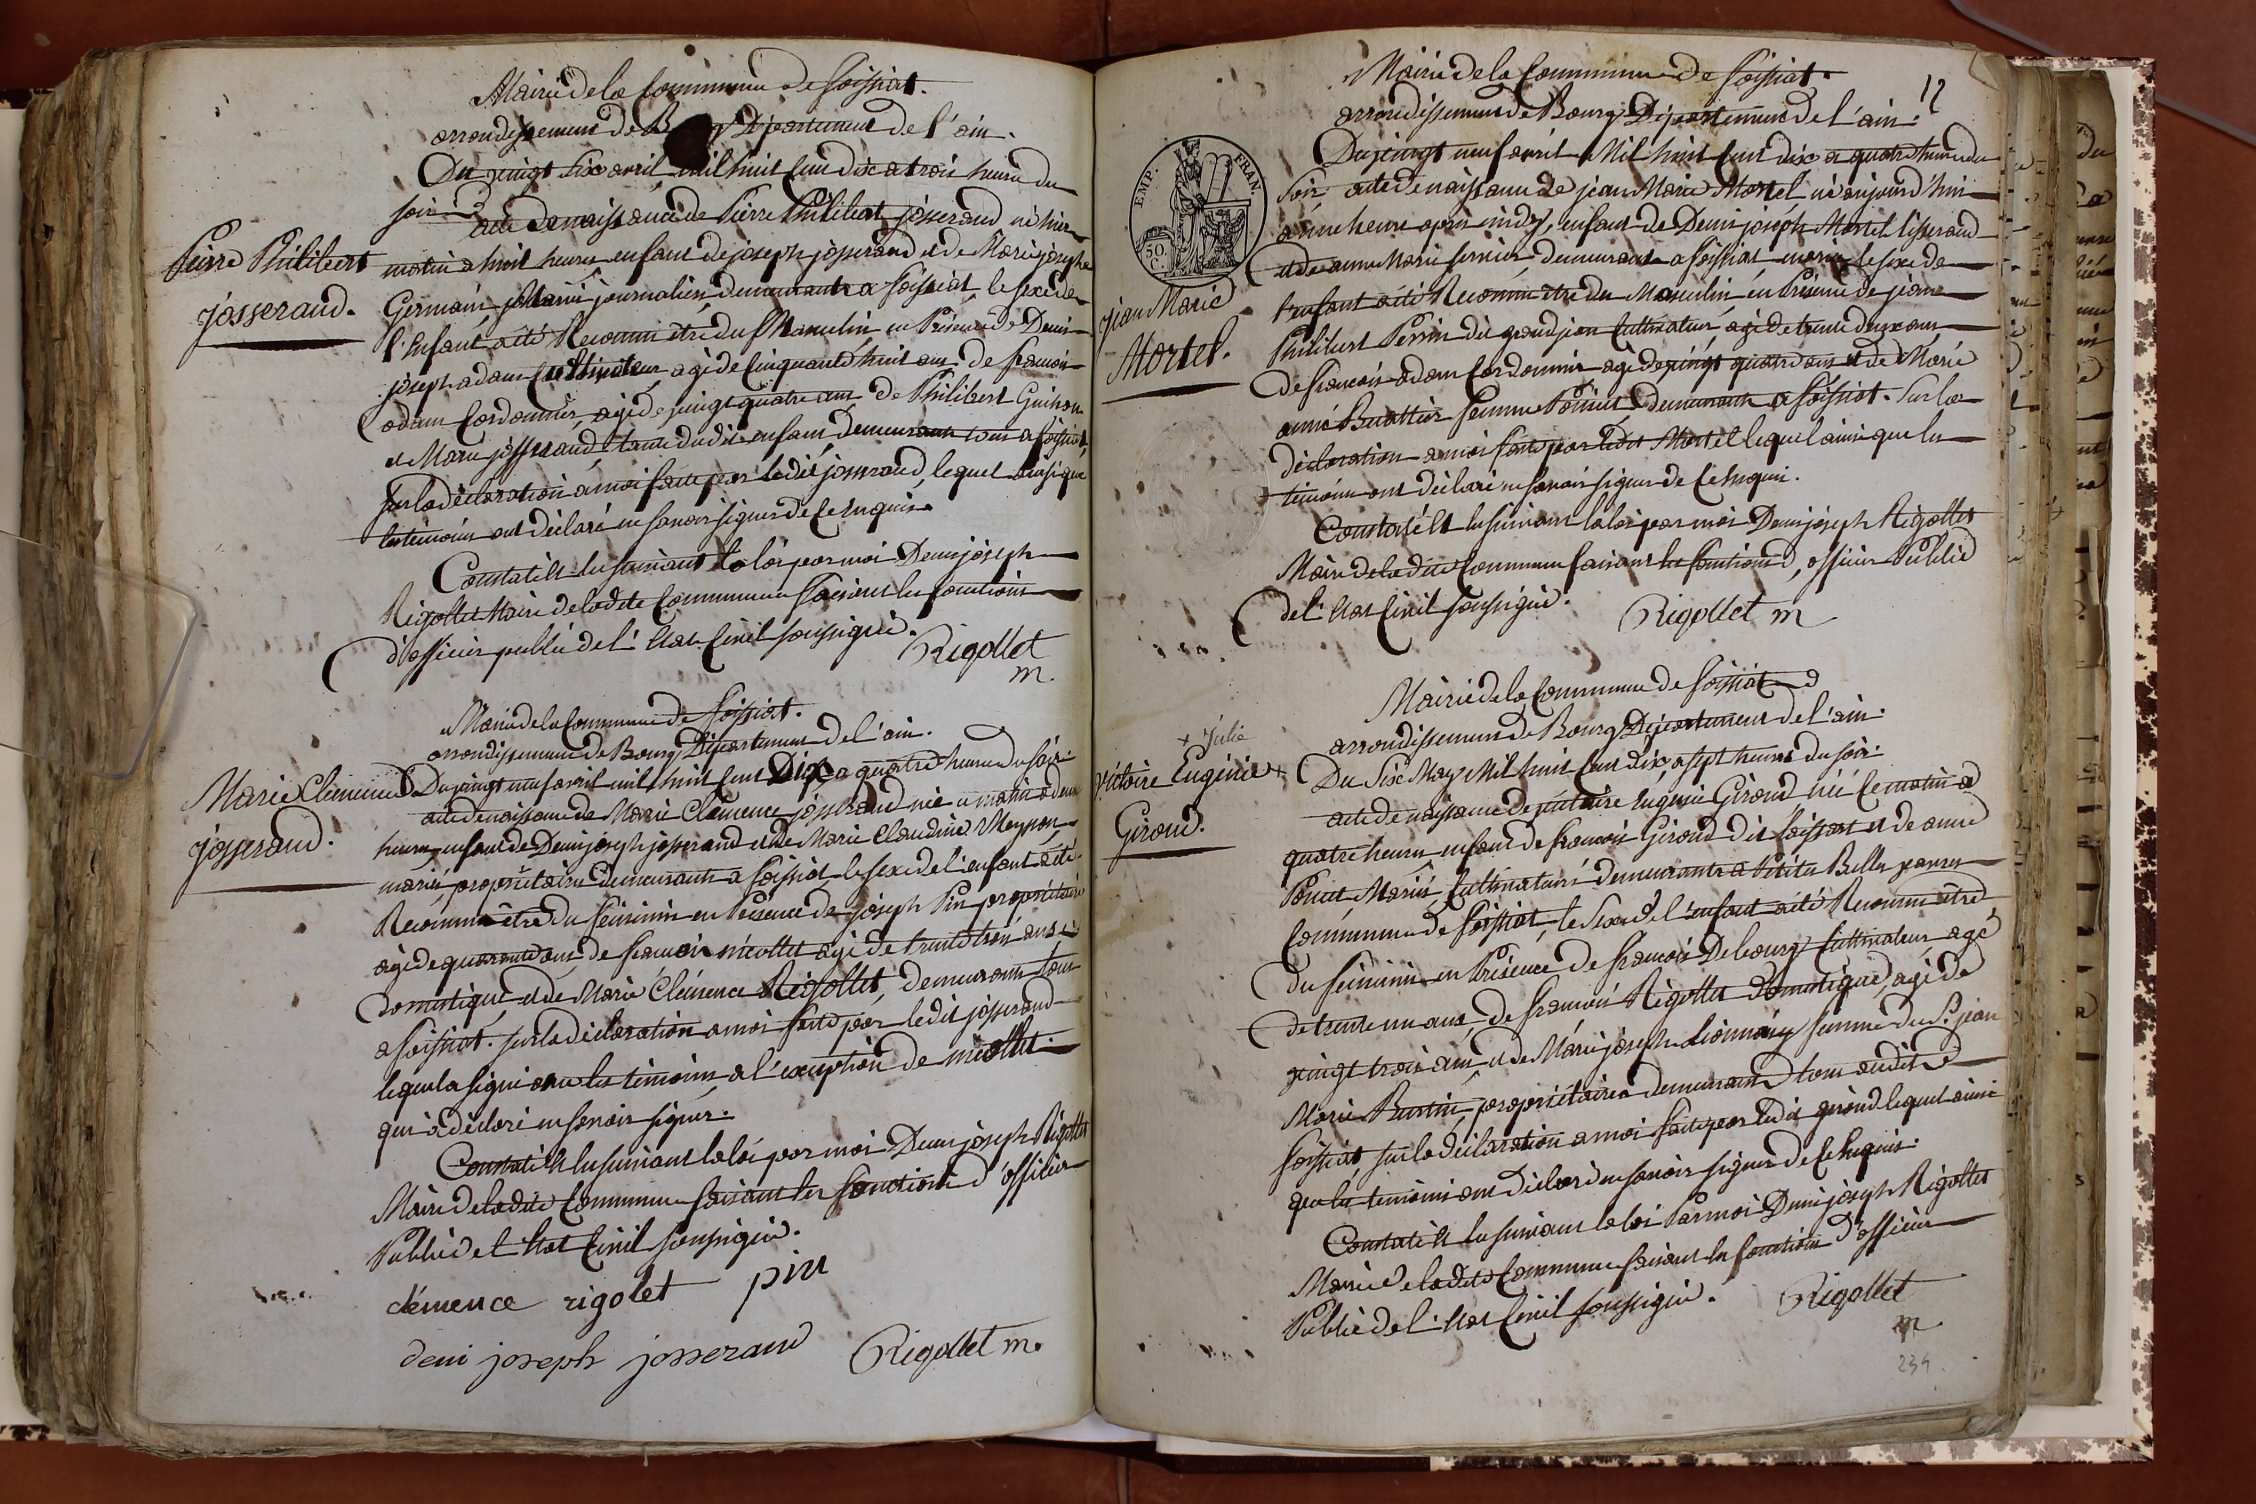 Mairie de la Commune de foissiat.
arrondissement de Bourg Departement de l'ain.
Du vingt six avril mil huit Cent dix a trois heures du
soir
acte de naissance de Pierre Philibert josserand né hier
Pierre Philibert
josserand.
matin a huit heures enfant de joseph josserand et de Marie josephe
Germain, Mariés journaliers demeurants a foissiat, le sexe de
l'Enfant a été Reconnu être du Masculin en Présence de Denis
joseph adam Cultivateur agé de Cinquante huit ans. de francois
adam Cordonnier, agé de vingt quatre ans de Philibert Guihon
et Marie josserand tante dudit enfant demeurants tous a foissiat,
sur la déclaration a moi faite par ledit josserand, lequel ainsi que
les témoins ont déclaré ne savoir signer de Ce Enquis.
Constaté et lu suivant la loi par moi Denis joseph
Rigollet Maire de ladite Commune faisant les fonctions
d'officier public de l'état Civil soussigné.
Rigollet
m.
Mairie de la Commune de foissiat.
arrondissement de Bourg Département de l'ain.
Marie Clemence
josserand.
Du vingt neuf avril mil huit Cent Dix a quatre heures du soir
acte de naissance de Marie Clemence josserand née ce matin a deux
heures, enfant de Denis joseph josserand et de Marie Claudine Meynon
mariés, propriétaires demeurants a foissiat le sexe de l'enfant a été
Reconnu être du féminin en Présence de joseph Pin propriétaire
agé de quarante ans, de francois nicollet agé de trente trois ans
Domestique, et de Marie Clémence Rigollet, demeurants tous
a foissiat. sur la déclaration a moi faite par ledit josserand
lequel a signé avec les témoins a l'exception de nicollet
qui a déclaré ne savoir signer.
Constaté et lu suivant la loi par moi Denis joseph Rigollet
Maire de ladite Commune faisant les fonctions d'officier
Public de l'état Civil soussigné.
clémence rigolet pin
deni joseph josserand Rigollet m.
12
Mairie de la Commune de foissiat.
arrondissement de Bourg Département de l'ain.
EMP. FRAN.
50. C.
jean Marie
Mortel.
Du vingt neuf avril Mil huit Cent dix a quatre heures du
soir acte de naissance de jean Marie Mortel né aujourd'hui
a une heure après midy, enfant de Denis joseph Mortel tisserand
et de anne Marie demeurants a foissiat mariés le sexe de
l'enfant a été Reconnu être du Masculin en Présence de jean
Philibert Perrin dit grandjean Cultivateur, agé de trente deux ans
de francois adam Cordonnier agé de vingt quatre ans et de Marie
anne Buattier femme demeurants a foissiat. Sur la
déclaration a moi faite par ledit Mortel lequel ainsi que les
témoins ont déclaré ne savoir signer de Ce Enquis.
Constaté et lu suivant la loi par moi Denis joseph Rigollet
Maire de ladite Commune faisant les fonctions d'officier Public
de l'état Civil soussigné.
Rigollet m
Mairie de la Commune de foissiat
arrondissement de Bourg Département de l'ain.
+ Julie
Victoire Eugénie +
Giroud.
Du Six May Mil huit Cent dix, a sept heures du soir.
acte de naissance de victoire Eugenie Giroud née Ce matin a
quatre heures enfant de francois Giroud dit et de anne
Poncet Mariés, Cultivateurs demeurants a Petites
Commune de foissiat, le sexe de l'enfant a été Reconnu être
du féminin en Présence de francois Debourg Cultivateur agé
de trente un ans, de francois Rigollet domestique, agé de
vingt trois ans, et de Marie joseph femme du Sr. jean
Marie propriétaires demeurants tous audit
foissiat sur la déclaration a moi faite par ledit giroud lequel ainsi
que les témoins ont déclaré ne savoir signer de Ce Enquis.
Constaté et lu suivant la loi Par moi Denis joseph Rigollet
Maire de ladite Commune faisant les fonctions d'officier
Public de l'état Civil soussigné.
Rigollet
m
234